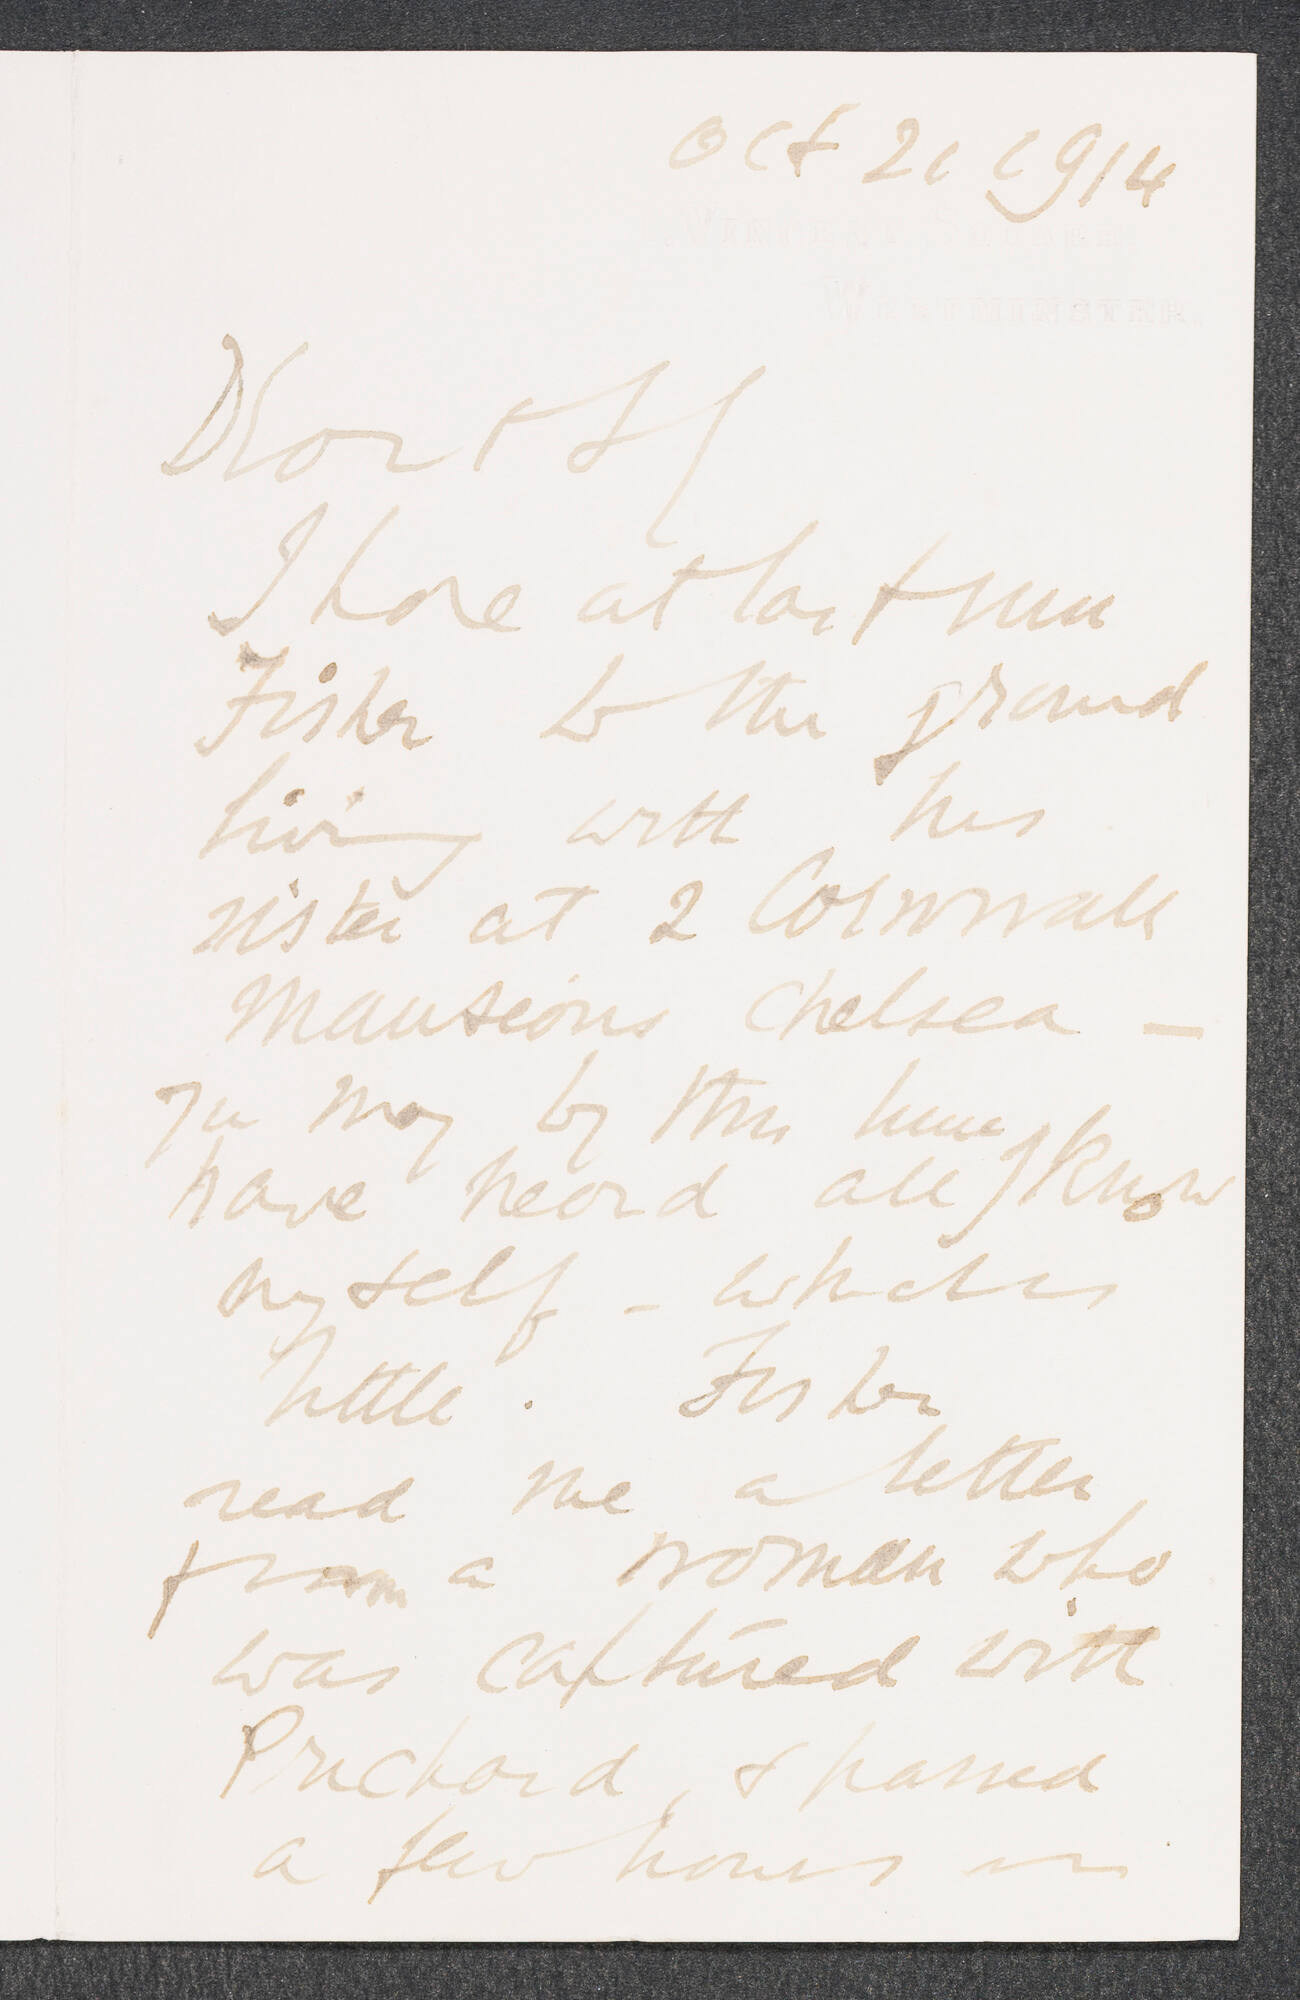 Oct 21 1914
Vincent Square
Westminster.
Dear
I have at last run
Fisher to the ground
living with his
sister at 2 Cornwall
Mansions Chelsea —
may by this time
have heard all I know
myself - which is
little. Fisher
read me a letter
from a woman who
was captured with
Prichard, & passed
a few hours in